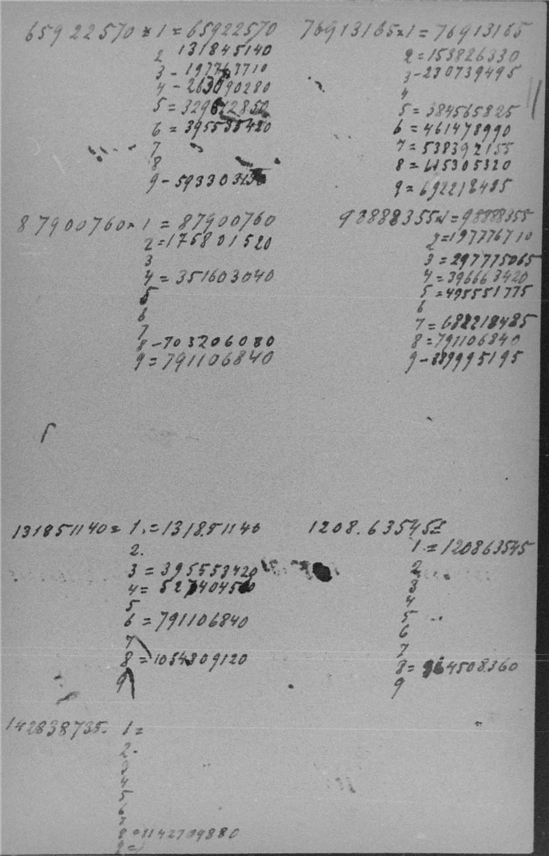 65922570 x 1 = 65922570
2 131845140
3 - 197767710
4 - 263690280
5 = 329612850
6 = 395535420
7
8
9 - 593303130
76913165 x 1 = 76913165
2 = 153826330
3 - 230739495
4
5 = 384565825
6 = 461478990
7 = 538392155
8 = 615305320
9 = 692218485
87900760 x 1 = 87900760
2 = 175801520
3
4 = 351603040
5
6
7
8 - 703206080
9 = 791106840
98888355 x 1 = 98888355
2 = 197776710
3 = 297775065
4 = 396663420
5 = 495551775
6
7 = 682218485
8 = 791106840
9 - 889995195
131851140 = 1. = 131851140
2.
3 = 395553420
4 = 527404560
5
6 = 791106840
7
8 = 1054809120
9
1208.63545 =
1. = 120863545
2
3
4
5
6
7
8 = 964508360
9
142838735. 1 =
2
3
4
5
6
7
8 = 1142709880
9 =